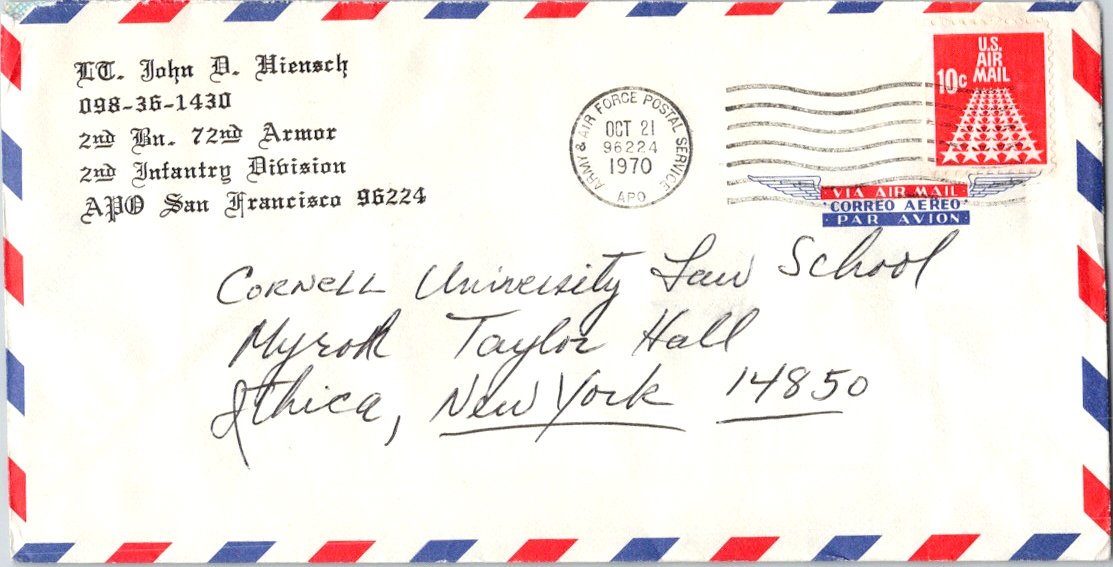 LT. John D. Hiensch
098-36-1430
2nd Bn. 72nd Armor
2nd Infantry Division
APO San Francisco 96224
ARMY & AIR FORCE POSTAL SERVICE
OCT 21
96224
1970
APO
U.S.
AIR
MAIL
10c
VIA AIR MAIL
CORREO AEREO
PAR AVION
Cornell University Law School
Myron Taylor Hall
Ithaca, New York 14850